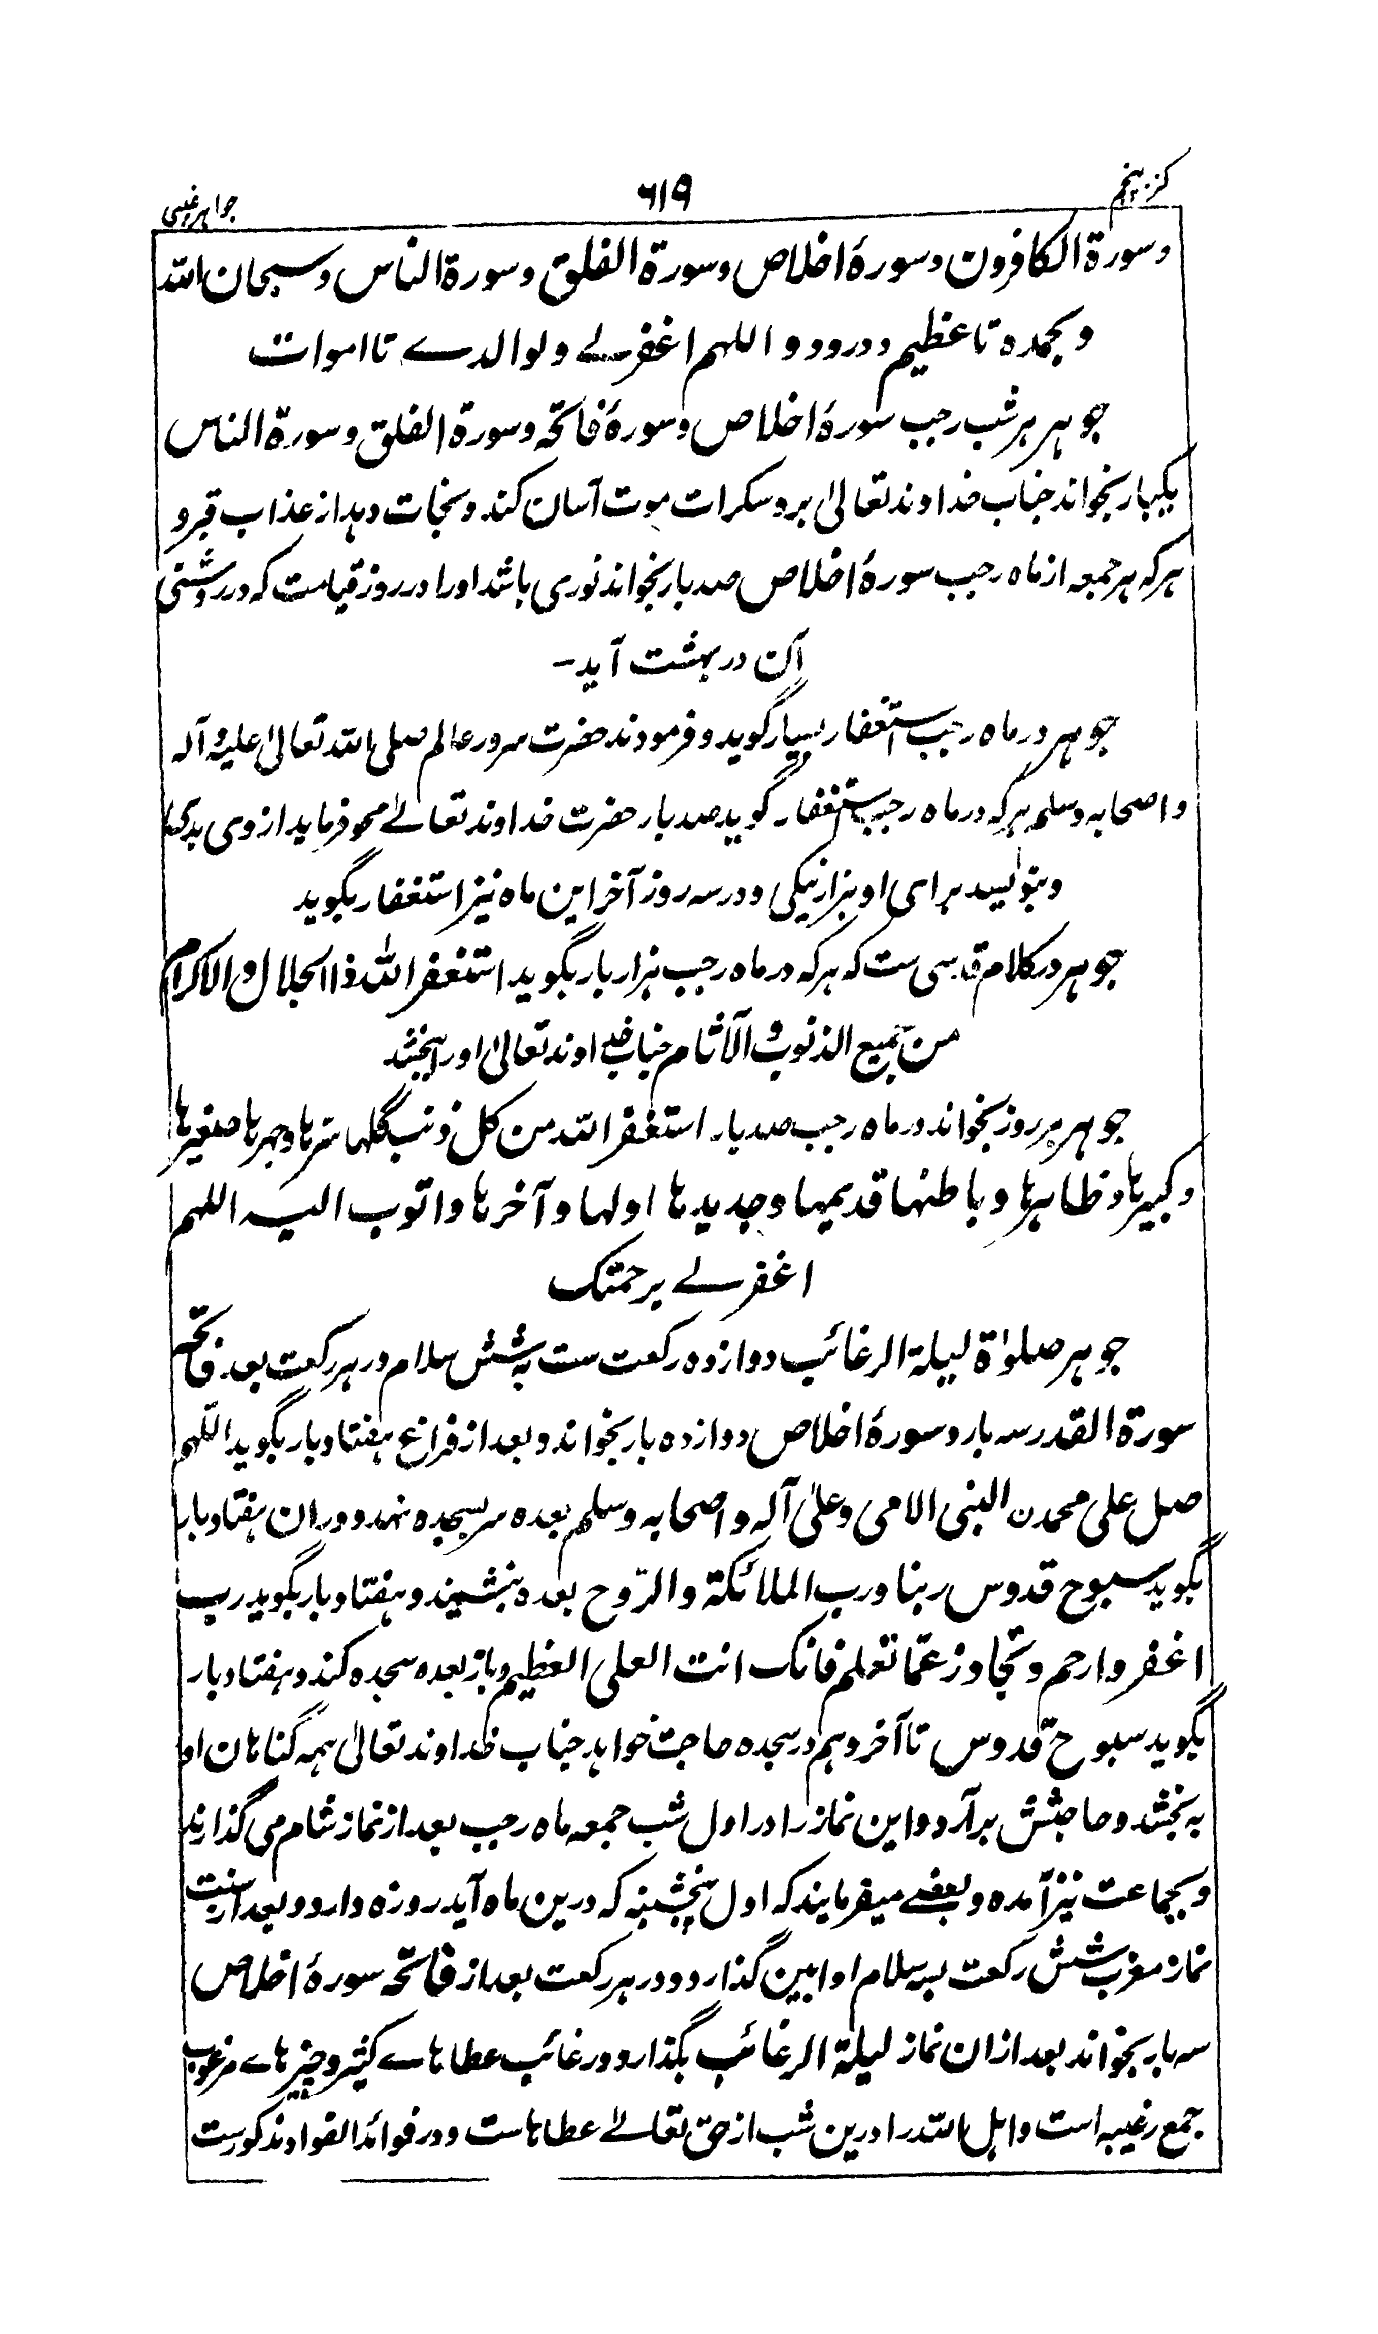 کنز پنجم ۶۱۹ جواهر غیبی
و سورة الکافرون و سورهٔ اخلاص و سورة الفلق و سورة الناس و سبحان الله
و بحمده تا عظیم و درود و اللهم اغفر لے و لوالدے تا اموات
جوهر هر شب رجب سورهٔ اخلاص و سورهٔ فاتحه و سورة الفلق و سورة الناس
یکبار بخواند جناب خداوند تعالیٰ برو سکرات موت آسان کند و نجات دهد از عذاب قبر و
هرکه هر جمعه از ماه رجب سورهٔ اخلاص صد بار بخواند نوری باشد او را در روز قیامت که در روشنی
آن در بهشت آید –
جوهر در ماه رجب استغفار بسیار گوید و فرمودند حضرت سرور عالم صلی الله تعالیٰ علیه و آله
و اصحابه و سلم هرکه در ماه رجب استغفار گوید صد بار حضرت خداوند تعالےٰ محو فرماید از وی
و بنویسد برای او هزار نیکی و در سه روز آخر این ماه نیز استغفار بگوید
جوهر در کلام قدسی ست که هرکه در ماه رجب هزار بار بگوید استغفر الله ذا الجلال و الاکرام
من جمیع الذنوب و الآثام جناب خداوند تعالیٰ او را ببخشد
جوهر هر روز بخواند در ماه رجب صد بار استغفر الله من کل ذنب کلها سرها و جهرها صغیرها
و کبیرها و ظاهرها و باطنها قدیمها و جدیدها اولها و آخرها و اتوب الیه اللهم
اغفر لے برحمتک
جوهر صلوٰة لیلة الرغائب دوازده رکعت ست به شش سلام در هر رکعت بعد فاتحه
سورة القدر سه بار و سورهٔ اخلاص دوازده بار بخواند و بعد از فراغ هفتاد بار بگوید اللّهم
صل علی محمدن النبی الامی و علیٰ آله و اصحابه و سلم بعده سر بسجده نهد و دران هفتاد بار
بگوید سبوح قدوس ربنا و رب الملائکة و الرّوح بعده بنشیند و هفتاد بار بگوید رب
اغفر وارحم و تجاوز عمّا تعلم فانک انت العلی العظیم و باز بعده سجده کند و هفتاد بار
بگوید سبوح قدوس تا آخر و هم در سجده حاجت خواهد جناب خداوند تعالیٰ همه گناهان او
به بخشد و حاجتش برآرد و این نماز را در اول شب جمعه ماه رجب بعد از نماز شام می گذارند
و بجماعت نیز آمده و بعضے میفرمایند که اول پنجشنبه که درین ماه آید روزه دارد و بعد از سنت
نماز مغرب شش رکعت بسه سلام اوابین گذارد و در هر رکعت بعد از فاتحه سورهٔ اخلاص
سه بار بخواند بعد ازان نماز لیلة الرغائب بگذارد و رغائب عطاهاے کثیر و چیزهاے مرغوب
جمع رغیبه است و اهل الله را درین شب از حق تعالےٰ عطاهاست و در فوائد الفواد مذکورست